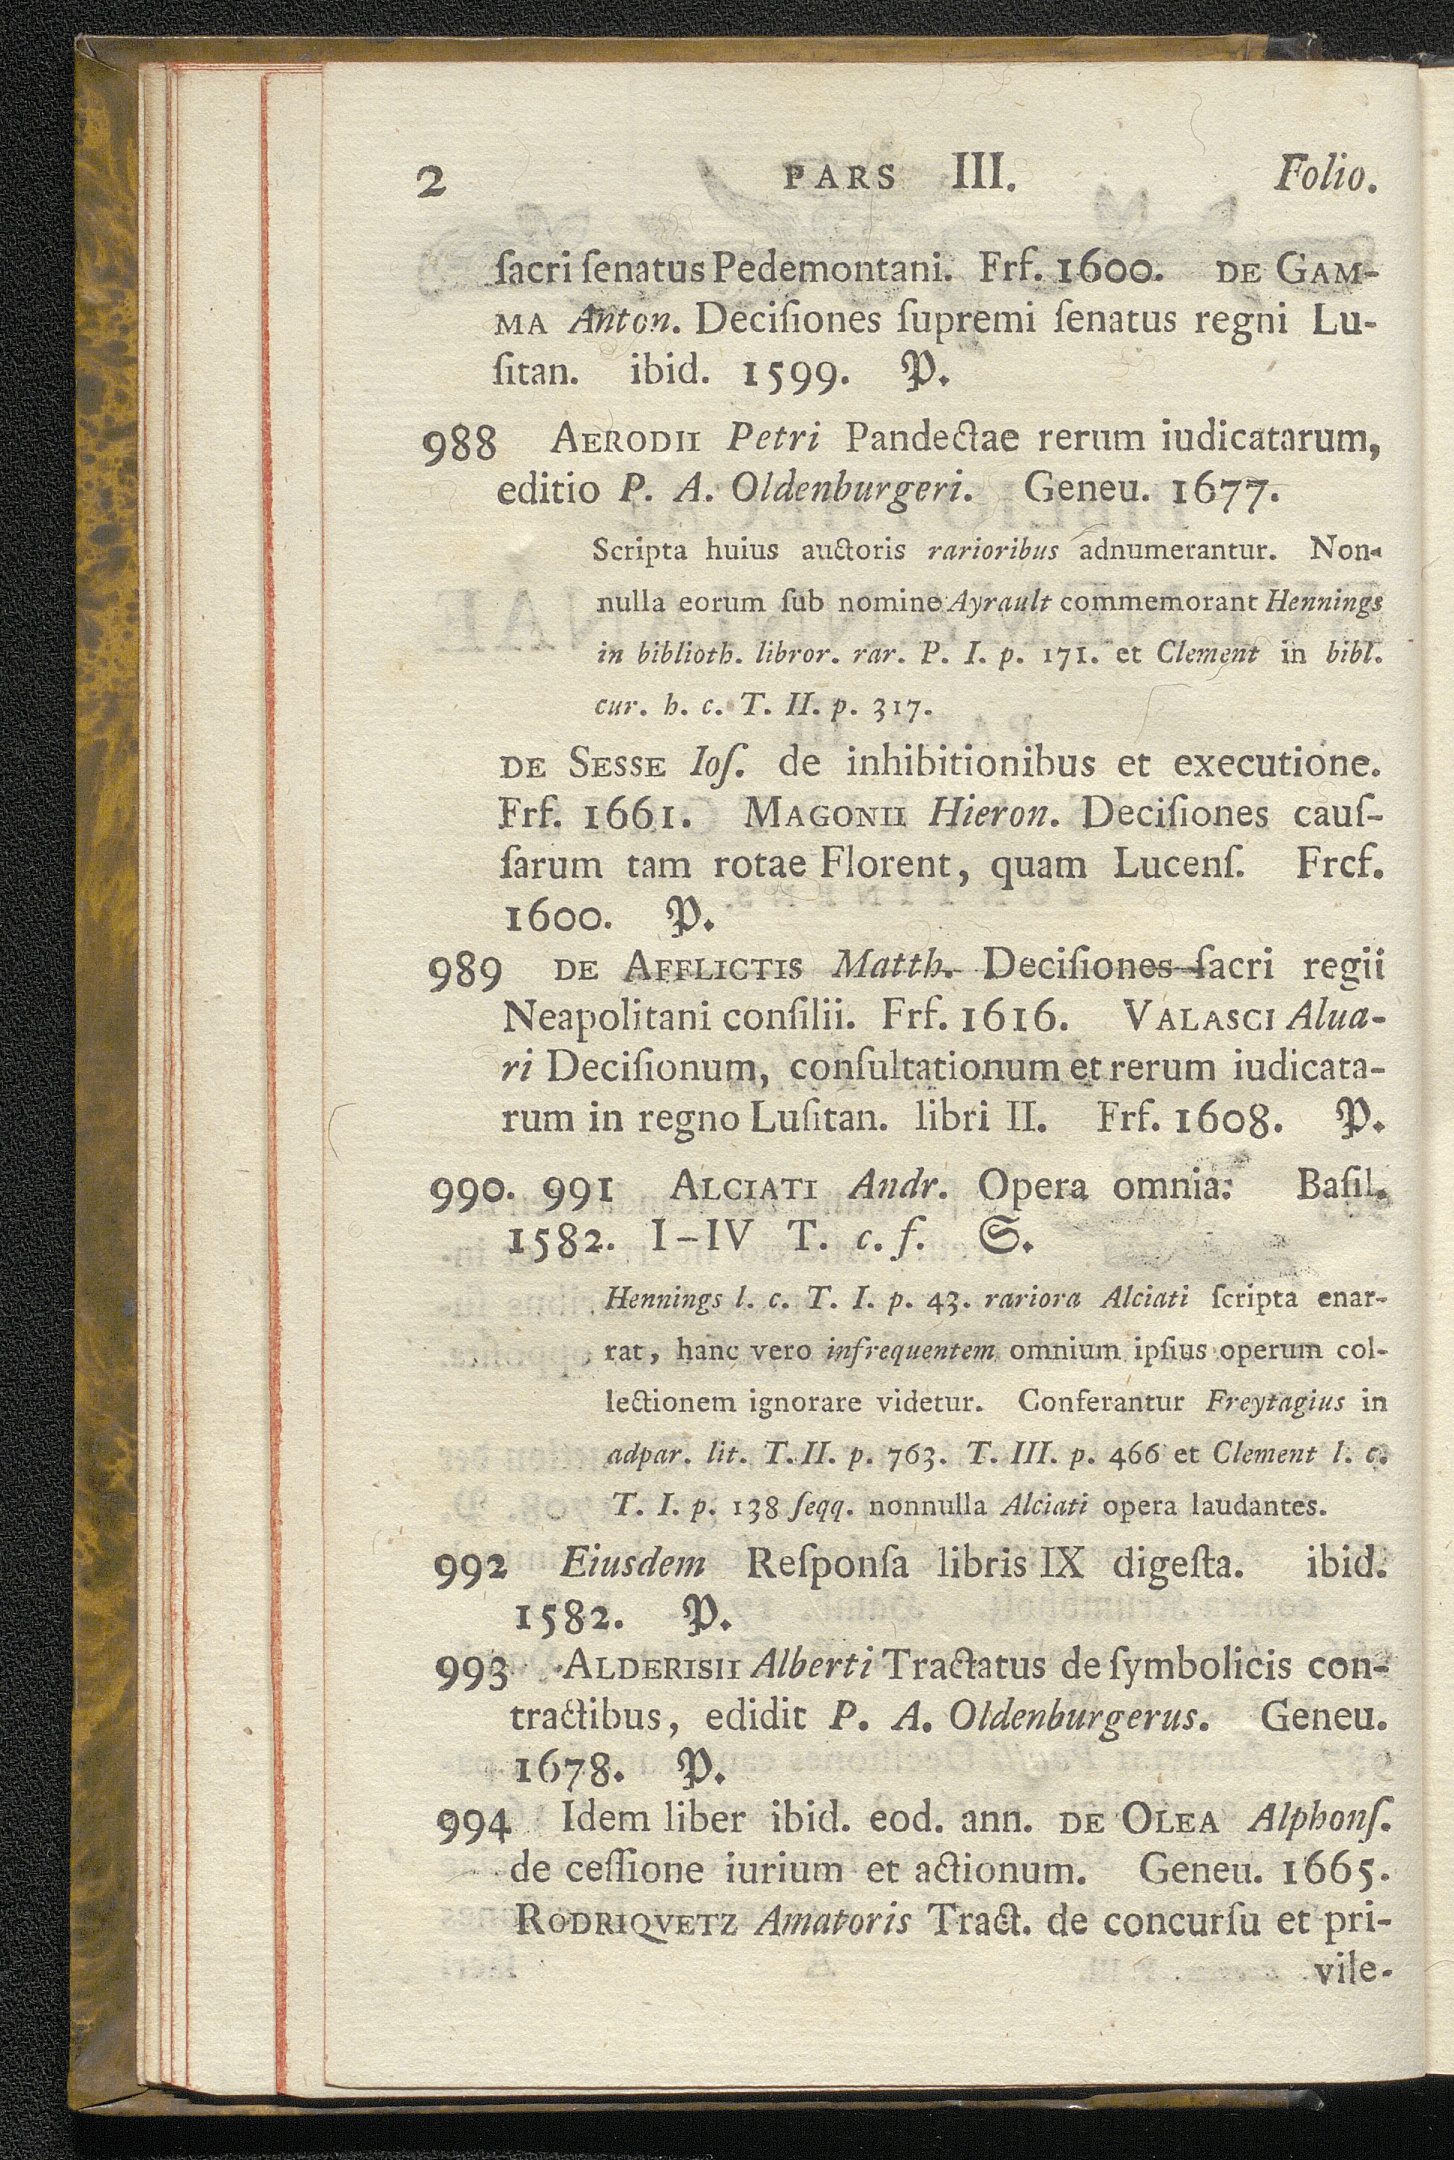 2 PARS III. Folio.
ſacri ſenatus Pedemontani. Frf. 1600. DE GAM-
MA Anton. Deciſiones ſupremi ſenatus regni Lu-
ſitan. ibid. 1599. P.
988 AERODII Petri Pandectae rerum iudicatarum,
editio P. A. Oldenburgeri. Geneu. 1677.
Scripta huius auctoris rarioribus adnumerantur. Non-
nulla eorum ſub nomine Ayrault commemorant Hennings
in biblioth. libror. rar. P. I. p. 171. et Clement in bibl.
cur. h. c. T. II. p. 317.
DE SESSE Ioſ. de inhibitionibus et executione.
Frf. 1661. MAGONII Hieron. Deciſiones cauſ-
ſarum tam rotae Florent, quam Lucenſ. Frcf.
1600. P.
989 DE AFFLICTIS Matth. Deciſiones ſacri regii
Neapolitani conſilii. Frf. 1616. VALASCI Alua-
ri Deciſionum, conſultationum et rerum iudicata-
rum in regno Luſitan. libri II. Frf. 1608. P.
990. 991 ALCIATI Andr. Opera omnia: Baſil.
1582. I-IV T. c. f. S.
Hennings l. c. T. I. p. 43. rariora Alciati ſcripta enar-
rat, hanc vero infrequentem omnium ipſius operum col-
lectionem ignorare videtur. Conferantur Freytagius in
adpar. lit. T. II. p. 763. T. III. p. 466 et Clement l. c.
T. I. p. 138 ſeqq. nonnulla Alciati opera laudantes.
992 Eiusdem Reſponſa libris IX digeſta. ibid.
1582. P.
993 ALDERISII Alberti Tractatus de ſymbolicis con-
tractibus, edidit P. A. Oldenburgerus. Geneu.
1678. P.
994 Idem liber ibid. eod. ann. DE OLEA Alphonſ.
de ceſſione iurium et actionum. Geneu. 1665.
RODRIQVETZ Amatoris Tract. de concurſu et pri-
vile-